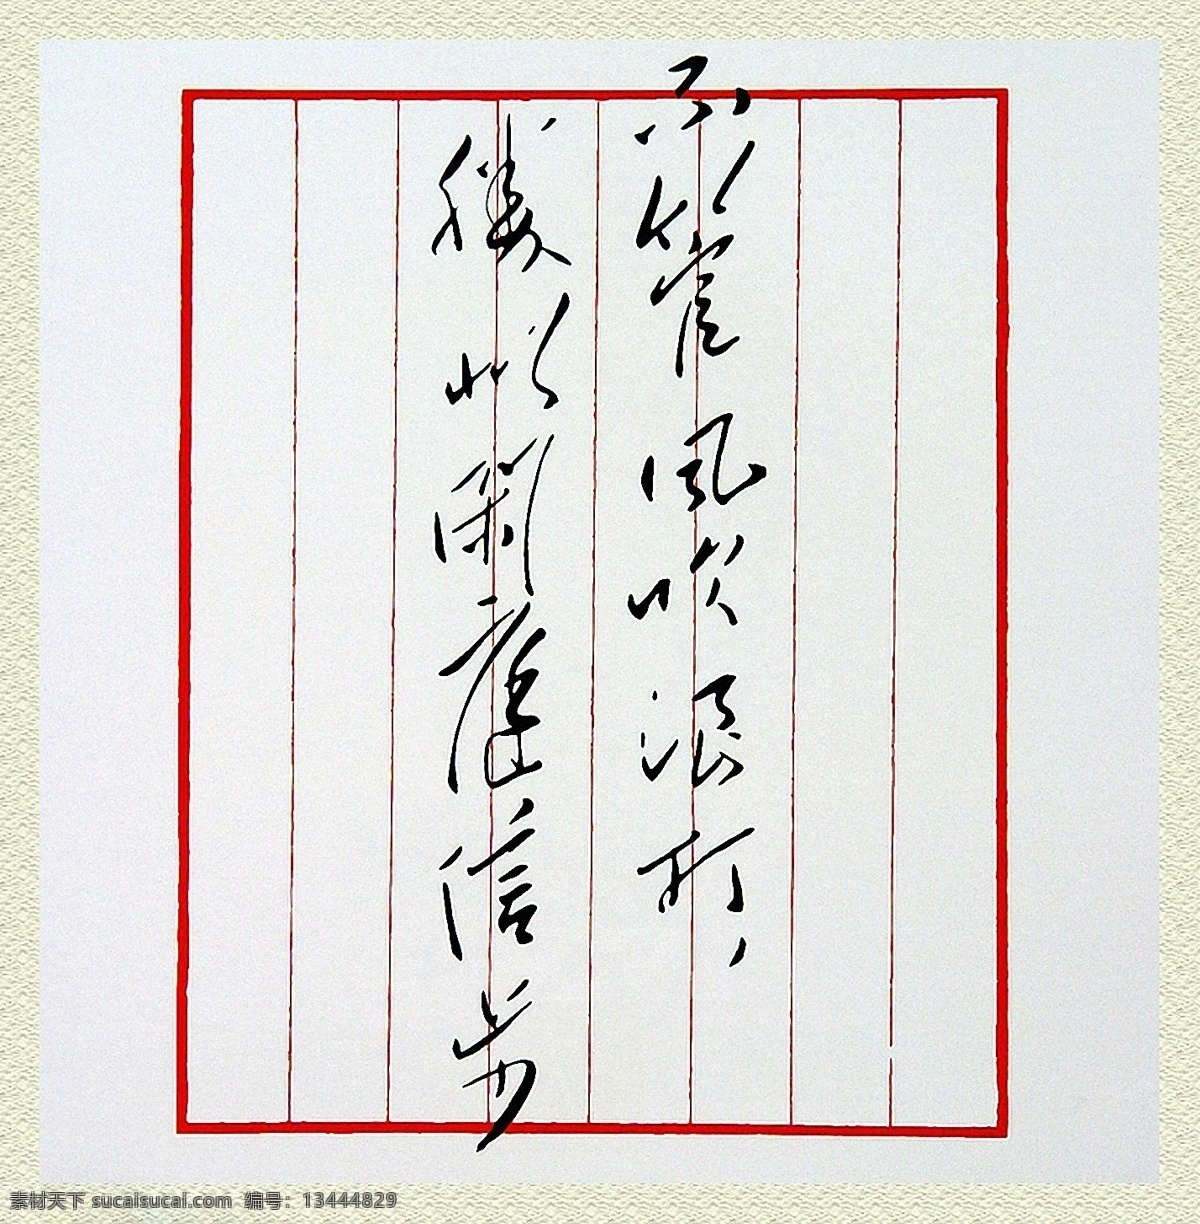 不管風吹浪打，
勝似閑庭信步
素材天下 sucaisucai.com 编号：13444829